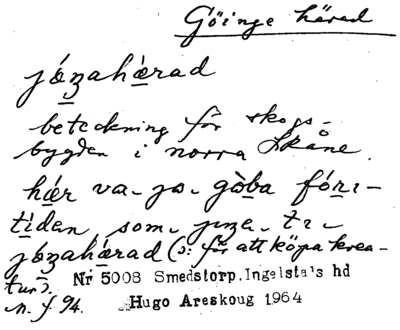 Göinge härad
jázahærad
beteckning för skogs-
bygden i norra Skåne.
hær va- ja- gòba fórı-
tìdan, som, jıza, tı,
jázahærad (ɔ: för att köpa krea-
tur).
m. f. 94.
Nr 5008 Smedstorp.Ingelsta's hd
Hugo Areskoug 1964